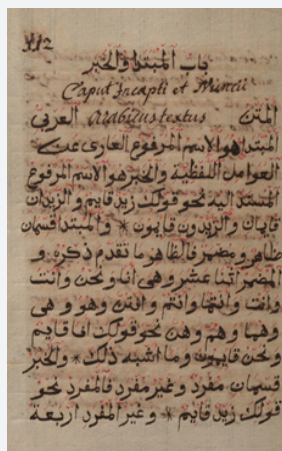 112
باب المبتدا والخبر
Caput Incepti et Nuncii
المتن Arabicus textus العربي
المبتدا هو الاسم المرفوع العارى عن
العوامل اللفظية والخبر هو الاسم المرفوع
المسند اليه نحو قولك زيد قايم والزيدان
قايمان والزيدون قايمون * والمبتدا قسمان
ظاهر ومضمر فالظاهر ما تقدم ذكره و
المضمر اثنا عشر وهى انا ونحن وانت
وانت وانتما وانتم وانتن وهو وهى
وهما وهم وهن نحو قولك انا قايم
ونحن قايمون وما اشبه ذلك * والخبر
قسمان مفرد وغير مفرد فالمفرد نحو
قولك زيد قايم * وغير المفرد اربعة